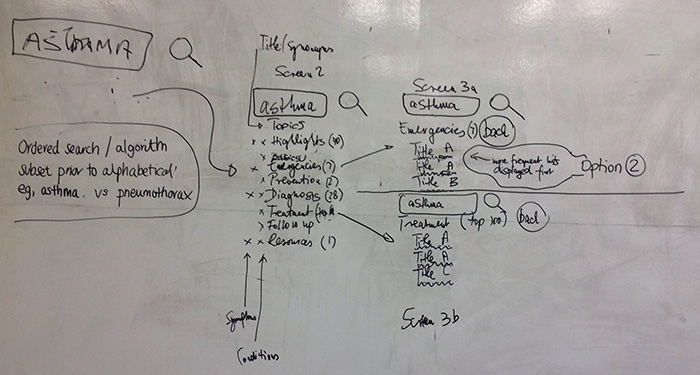 ASTHMA
Ordered search / algorithm
subset prior to alphabetical'
eg, asthma. vs pneumothorax
Title/synonyms
Screen 2
asthma
Topics
x x Highlights (10)
x Basics
x Emergencies (7)
x Prevention (2)
x x Diagnosis (28)
x Treatment (top 100
x Follow up
x x Resources (1)
Symptoms
Conditions
Screen 3a
asthma
Emergencies (7) back
Title A
Title A
Title B
more frequent hits
displayed first
Option 2
asthma
Treatment (top 100) back
Title A
Title A
Title C
Screen 3b